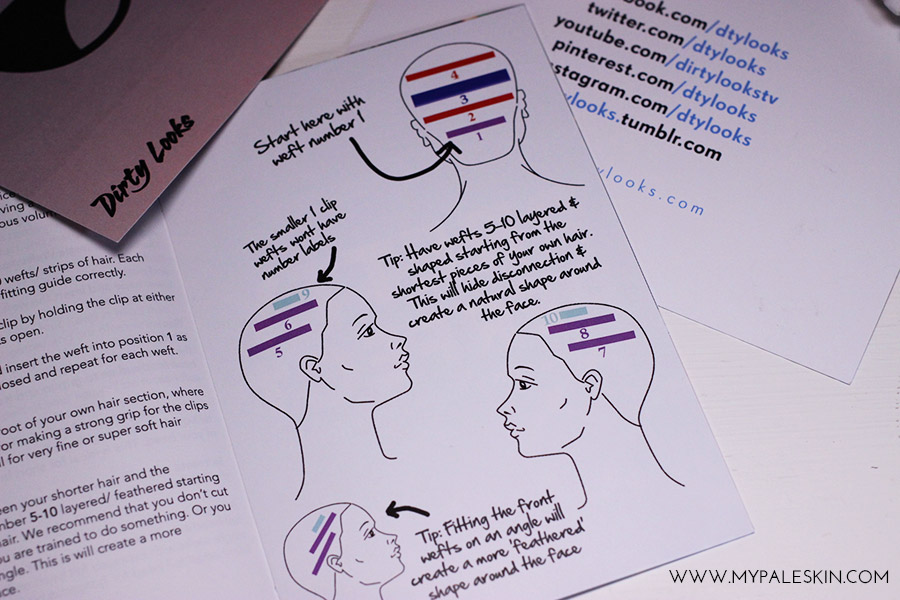 Dirty Looks
book.com/dtylooks
twitter.com/dtylooks
youtube.com/dirtylookstv
pinterest.com/dtylooks
stagram.com/dtylooks
ylooks.tumblr.com
ylooks.com
Start here with
weft number 1
4
3
2
1
The smaller 1 clip
wefts wont have
number labels
Tip: Have wefts 5-10 layered &
shaped starting from the
shortest pieces of your own hair.
This will hide disconnection &
create a natural shape around
the face.
9
6
5
10
8
7
Tip: Fitting the front
wefts on an angle will
create a more 'feathered'
shape around the face
wefts/ strips of hair. Each
fitting guide correctly.
clip by holding the clip at either
s open.
insert the weft into position 1 as
losed and repeat for each weft.
oot of your own hair section, where
or making a strong grip for the clips
l for very fine or super soft hair
een your shorter hair and the
mber 5-10 layered/ feathered starting
hair. We recommend that you don't cut
ou are trained to do something. Or you
ngle. This is will create a more
ce.
WWW.MYPALESKIN.COM